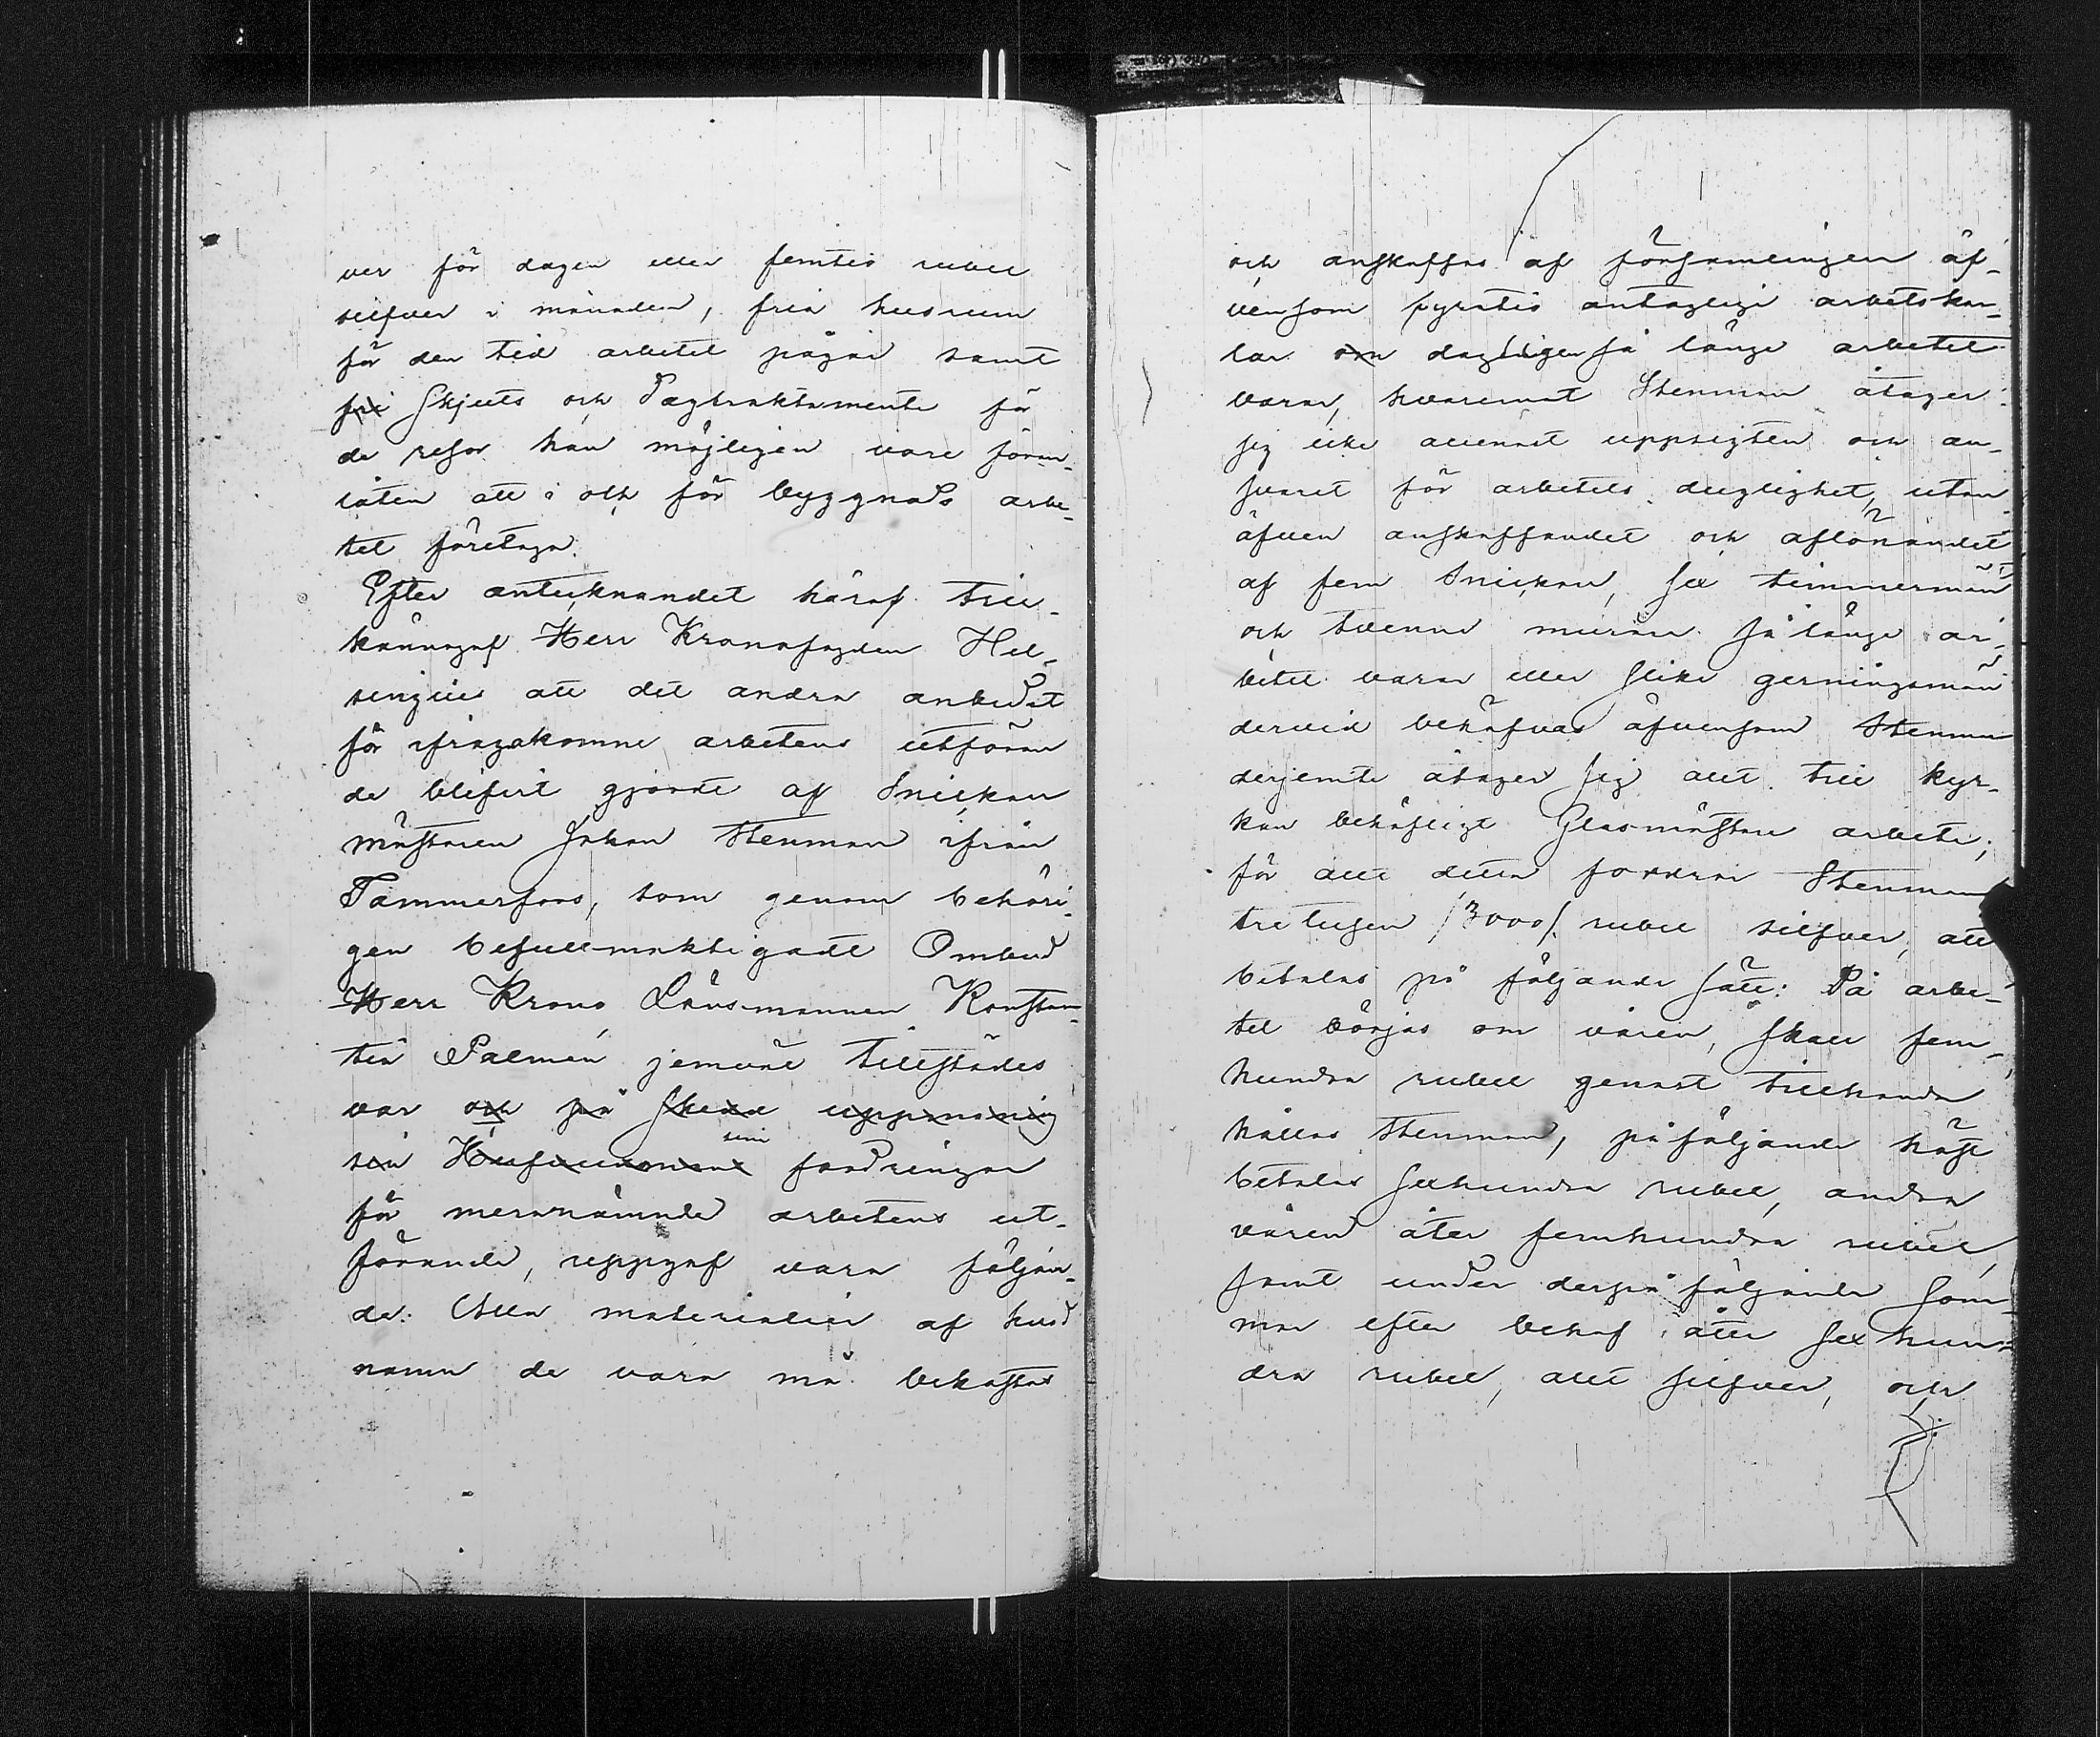 ver för dagen eller femtio rubel
silfver i månaden, fria husrum
för den tid arbetet pågår samt
fri skjuts och Dagtraktamente för
de resor han möjligen vore föran-
låten att i och för byggnads arbe-
tet företaga.
Efter antecknandet häraf till-
kännagaf Herr Kronofogden Hel-
singius att det andra anbudet
för ifrågakomne arbetens utföran
de blifvit gjordt af Snickare
mästaren Johan Stenman ifrån
Tammerfors, som genom behöri-
gen befullmäktigadt Ombud
Herr Krono Länsmannen Konstan-
tin Palmén jemväl tillstädes
var och på skedd uppmaning
sin sine fordringar
för meranämnde arbetens ut-
förande, uppgaf vara följan-
de: Alla materialier af hvad
namn de vara må bekostas
och anskaffas af församlingen äf-
vensom fyratio antagliga arbetskar-
lar om dagligen så länge arbetet
varar, hvaremot Stenman åtager
sig icke allenast uppsigten och an-
svaret för arbetets duglighet, utan
äfven anskaffandet och aflönandet
af fem Snickare, sex timmermän
och tvenne murare så länge ar-
betet varar eller slike gerningsmän
dervid behöfvas äfvensom Stenman
derjemte åtager sig allt till kyr-
kan behöfligt Glasmästare arbete;
för allt detta fordrar Stenman
tretusen /3000/ rubel silfver, att
betalas på följande sätt: Då arbe-
tet börjas om våren, skall fem-
hundra rubel genast tillhanda
hållas Stenman, påföljande höst
betalas sexhundra rubel, andra
våren åter femhundra rubel,
samt under derpå följande som-
mar efter behof åter sex hun-
dra rubel, allt silfver, och